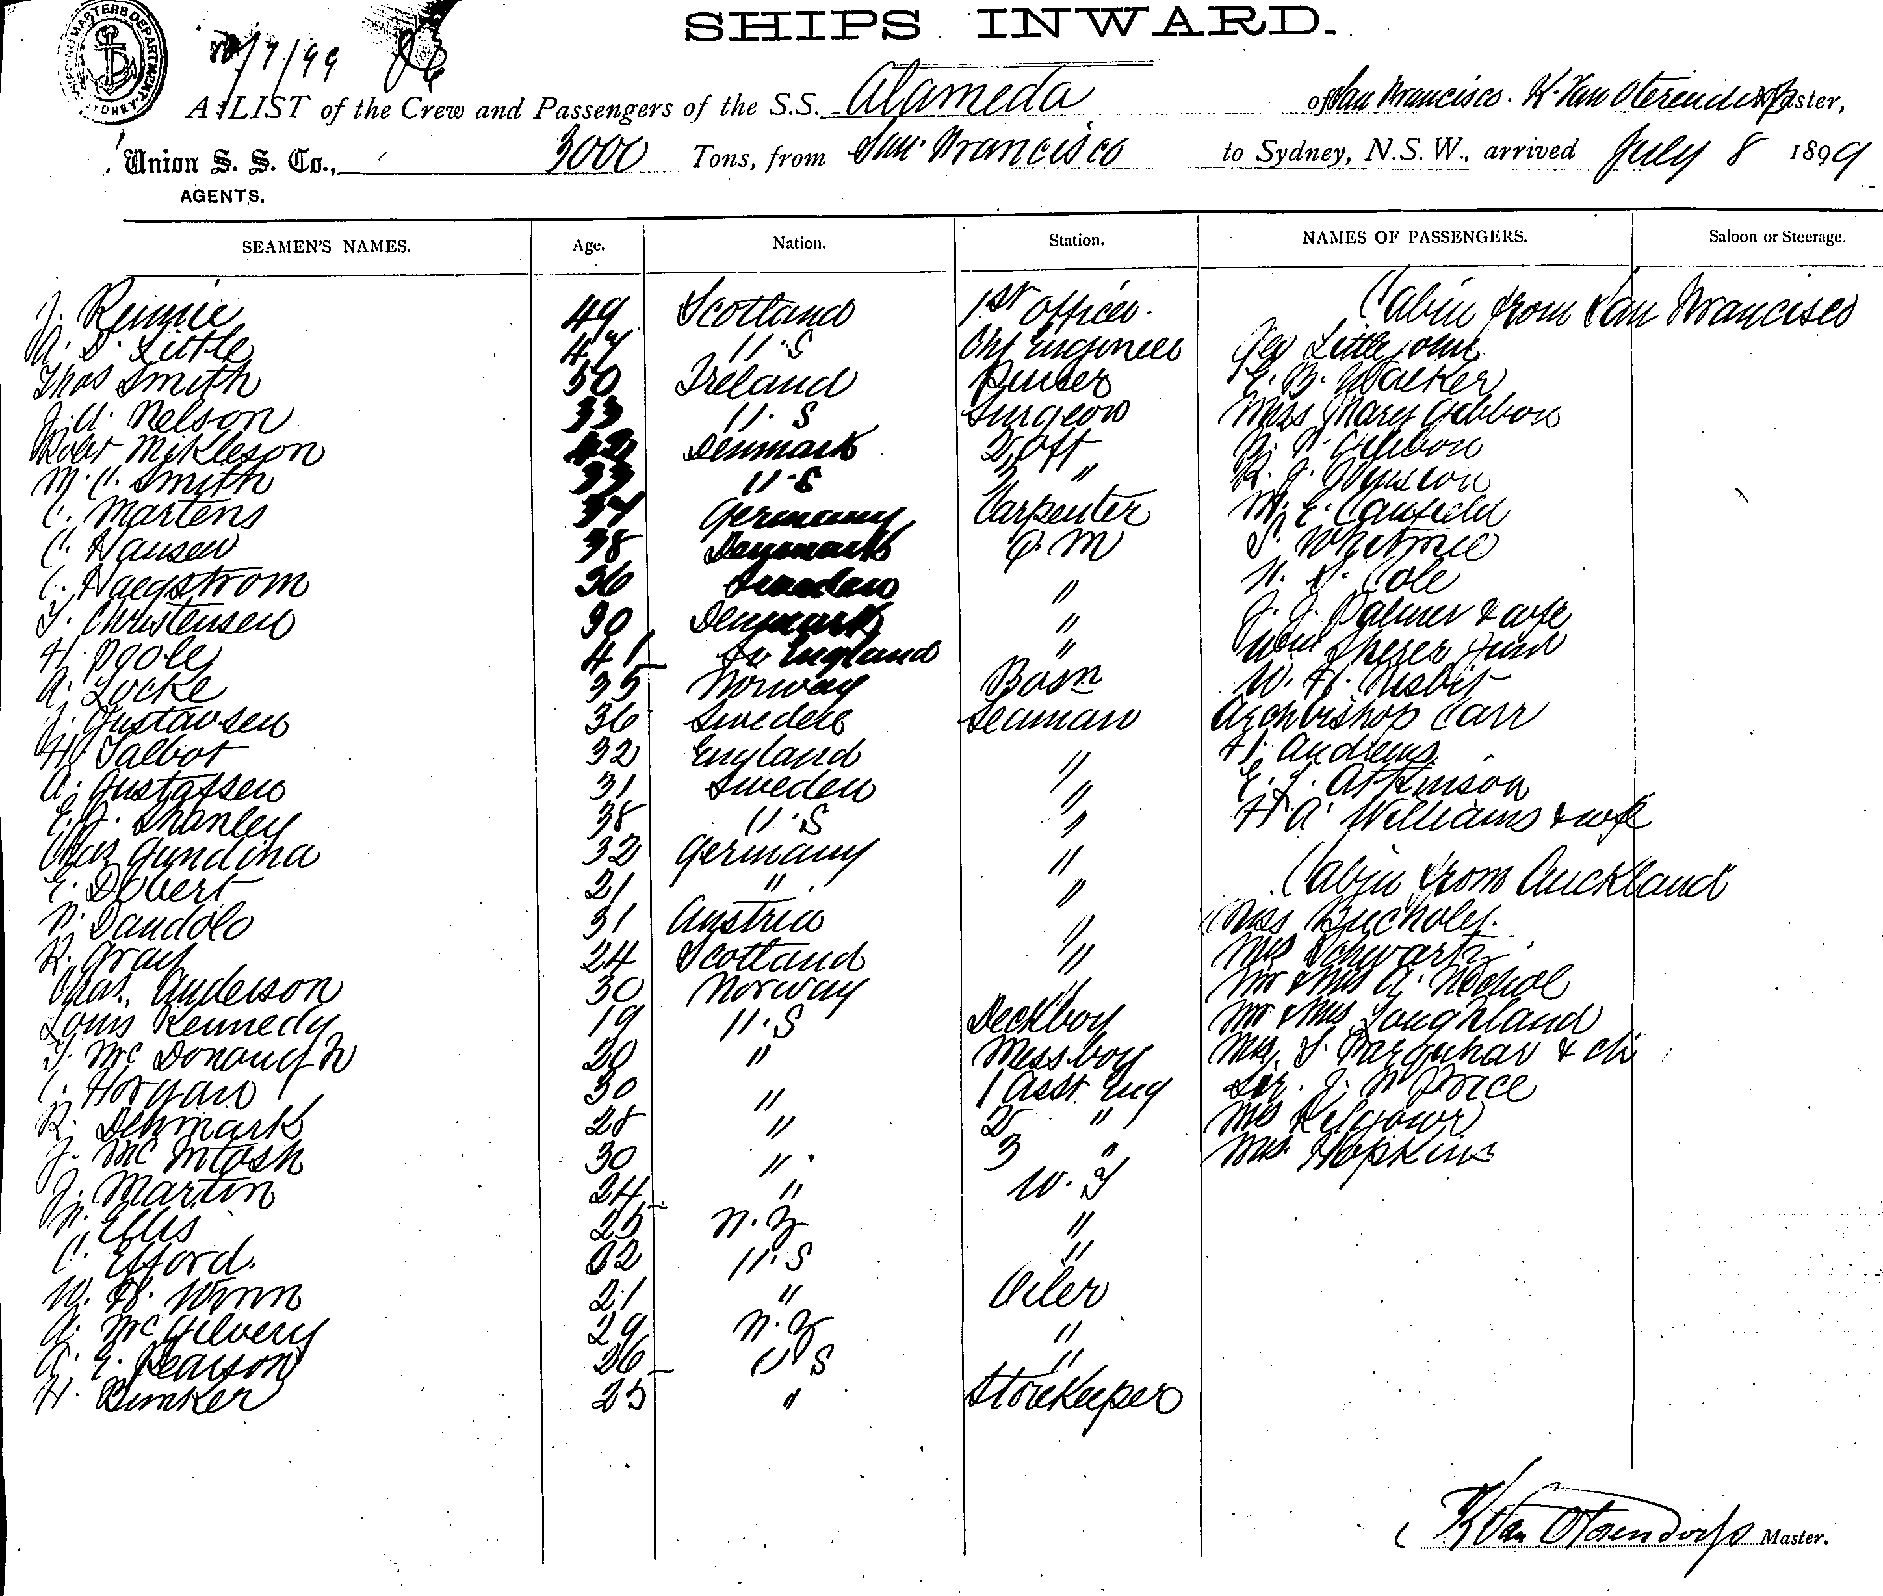 SHIPS INWARD.
10/7/99
A LIST of the Crew and Passengers of the S.S. Alameda of San Francisco. H. Van Oterendorp Master,
Union S. S. Co., 3000 Tons, from San Francisco to Sydney, N.S.W., arrived July 8 1899
AGENTS.
SEAMEN'S NAMES. Age. Nation. Station. NAMES OF PASSENGERS. Saloon or Steerage.
J. Rennie 49 Scotland 1st officer. Cabin from San Francisco
A. D. Little 47 U.S Chf Engineer Geo Little john
Thos Smith 50 Ireland Purser E. B. Walker
J. A. Nelson 33 U.S Surgeon Miss Mary Gibbon
Robt Mikleson 42 Denmark 2 Off Gibbon
M. C. Smith 33 U.S 3 " R. J.
C. Martens 37 Germany Carpenter M. E. Canfield
C. Hansen 38 Denmark Q M S. Whitmee
C. Haegstrom 36 Sweden " Cole
T. Christensen 30 Denmark " J. J. Palmer & wife
H. Poole 41 England "
A. Locke 35 Norway Bosn W. H. Nisbit
J. Gustavsen 36 Sweden Seaman Archbishop Carr
H. Talbot 32 England " H. Andrews
A. Gustafsen 31 Sweden " E. L. Atkinson
E. J. Shanley 38 U.S " H A. Williams & wife
Chas Gundina 32 Germany "
E. Dobert 21 " " Cabin from Auckland
N. Dandolo 31 Austria " Miss Bucholz.
R. Gray 24 Scotland " Miss Schwartz
Chas. Anderson 30 Norway " Mr & Mrs A. Nichol
Louis Kennedy 19 U.S Deckboy Mr & Mrs Loughland
T. Mc Donaugh 20 " Mess boy Mrs. S. Farquhar & ch
C. Horgan 30 " 1 Asst. Eng Sir. J. Price
R. Denmark 28 " 2 " Mrs Kilgour
J. Mc Intosh 30 " 3 " Mrs. Hopkins
J. Martin 24 " W. T
Ellis 25 N. Z "
C. Efford. 32 U.S "
W. H. Winn 21 " Oiler
A. Mc Gilvery 29 N. Z "
A. E. Pearson 26 U S "
H. Bunker 25 " Storekeeper
H Van Oterendorp Master.